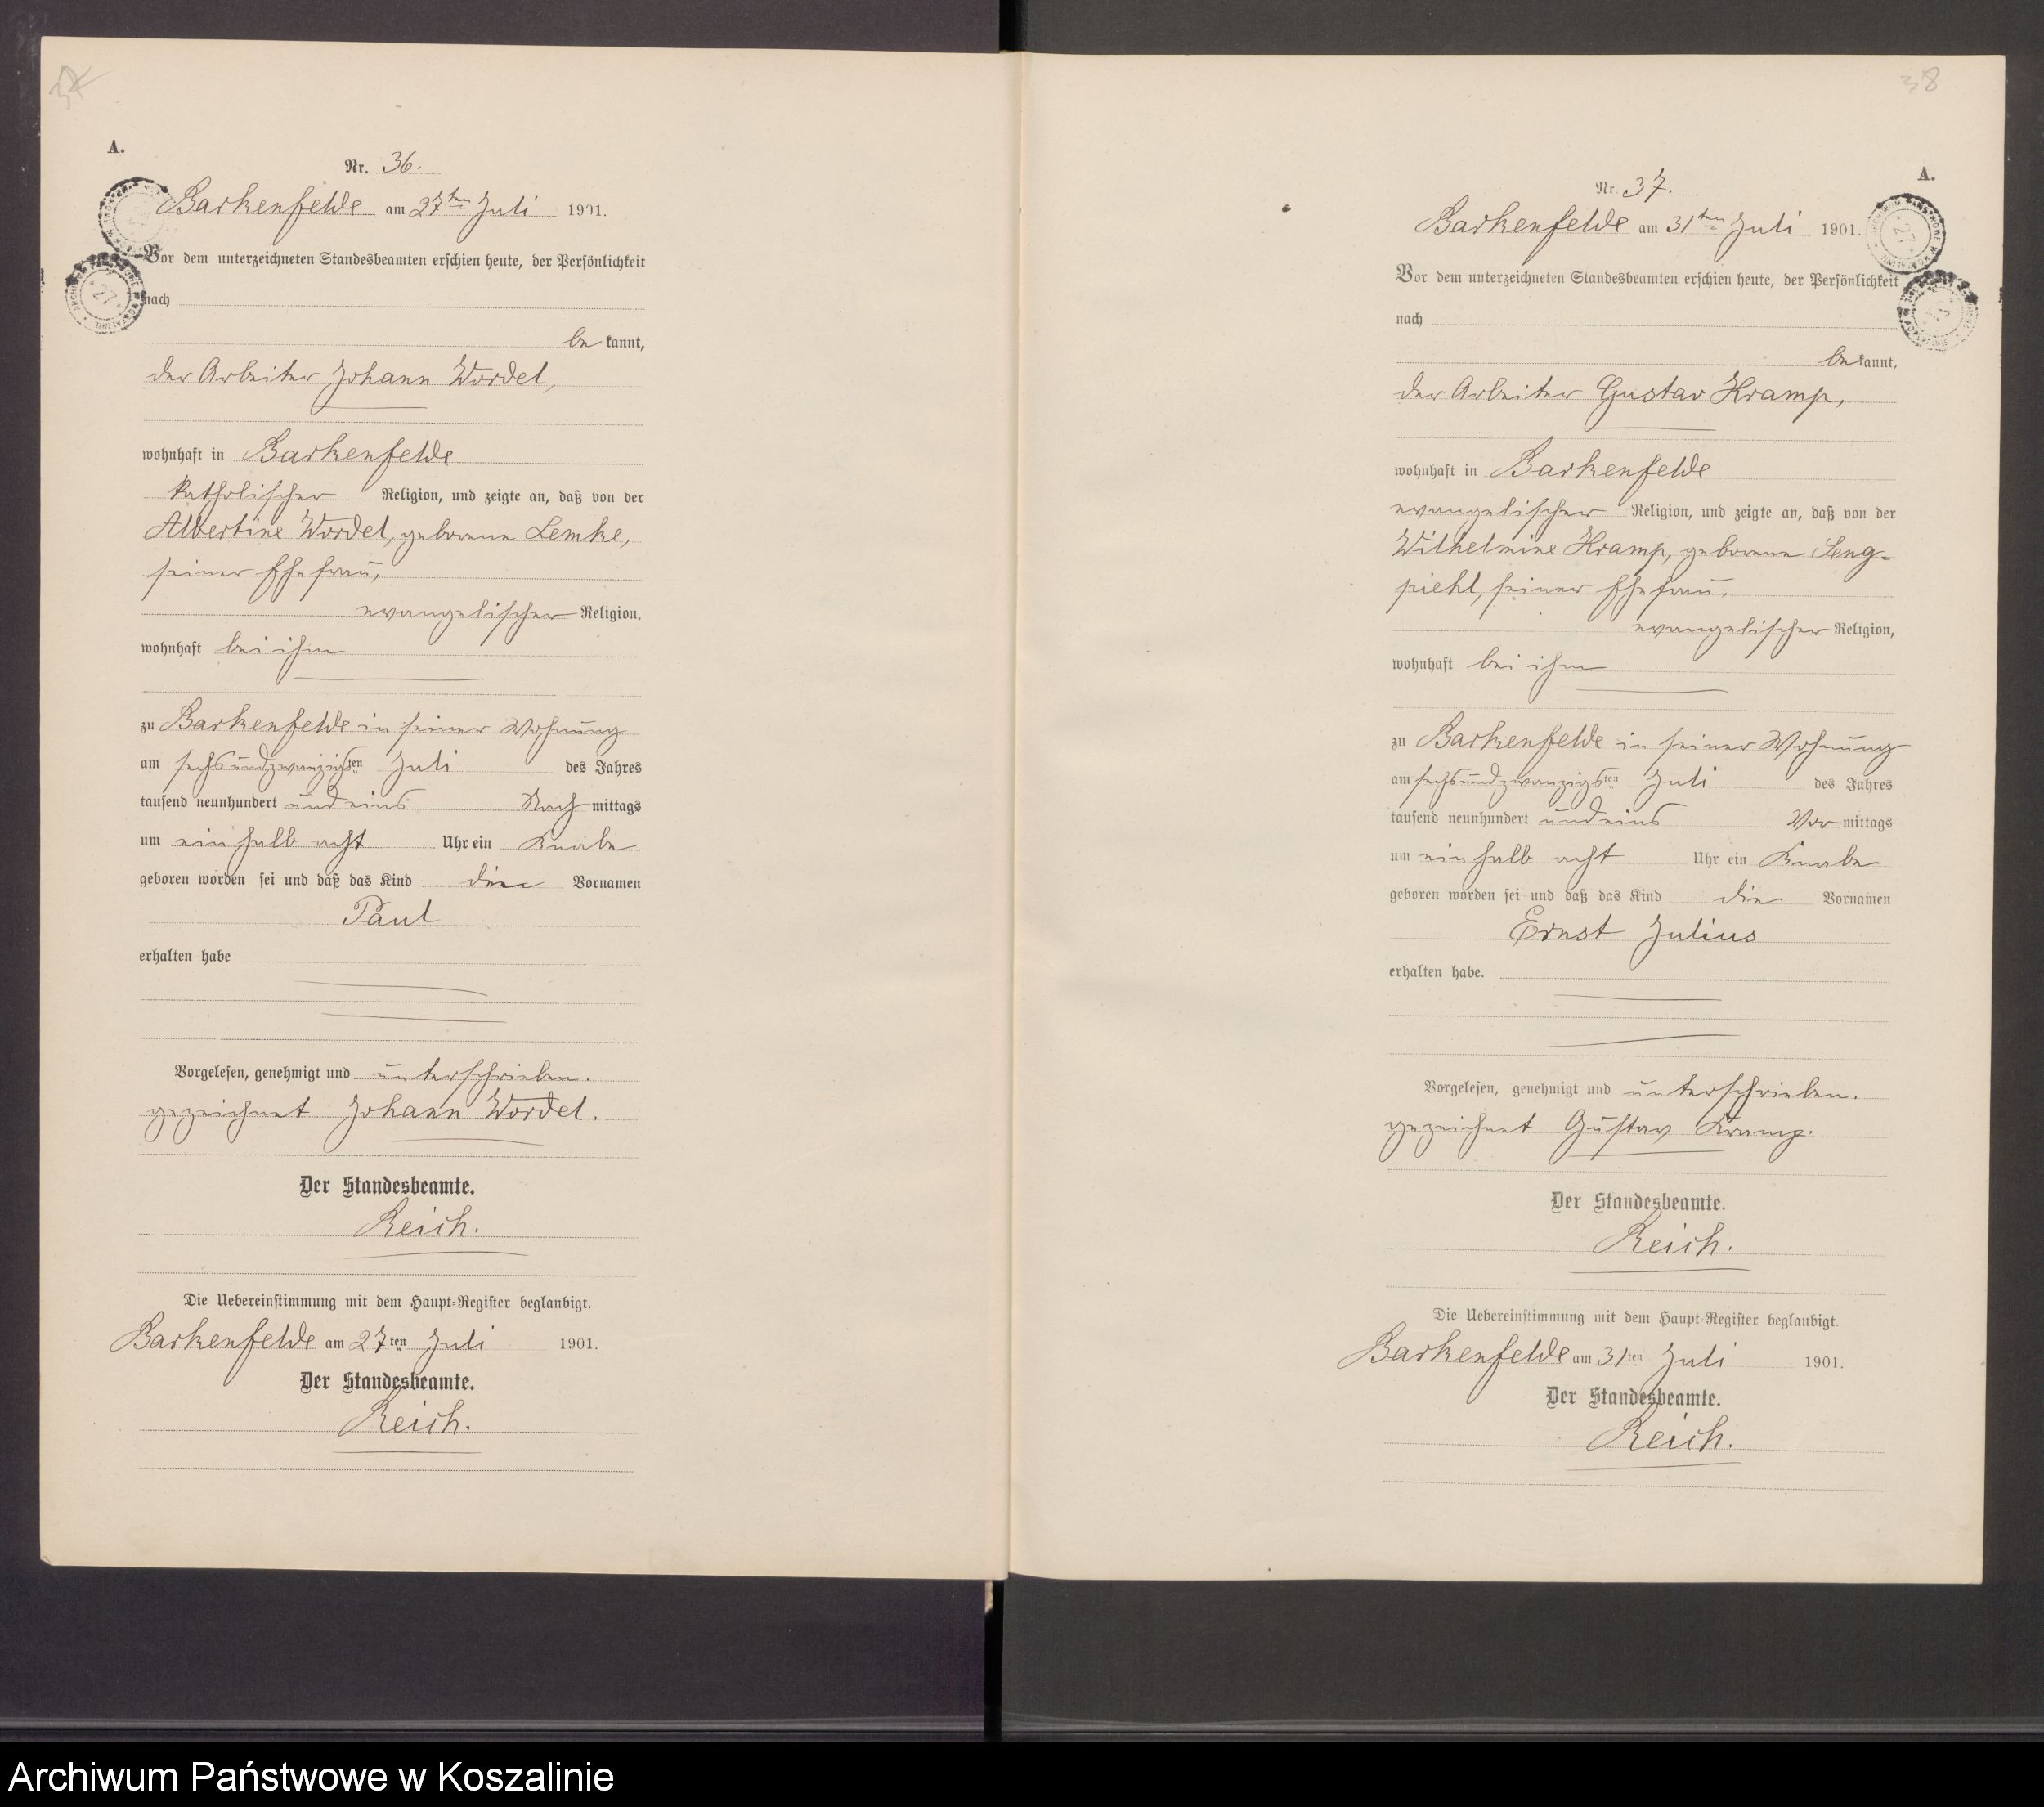 37
A.
Nr. 36.
Barkenfelde am 27ten Juli 1901.
Vor dem unterzeichneten Standesbeamten erschien heute, der Persönlichkeit
nach
be kannt,
der Arbeiter Johann Wordel,
wohnhaft in Barkenfelde
katholischer Religion, und zeigte an, daß von der
Albertine Wordel, geborene Lemke,
seiner Ehefrau,
evangelischer Religion,
wohnhaft bei ihm
zu Barkenfelde in seiner Wohnung
am sechsundzwanzigsten Juli des Jahres
tausend neunhundert und eins Nach mittags
um ein halb acht Uhr ein Knabe
geboren worden sei und daß das Kind den Vornamen
Paul
erhalten habe
Vorgelesen, genehmigt und unterschrieben.
gezeichnet Johann Wordel.
Der Standesbeamte.
Reich.
Die Uebereinstimmung mit dem Haupt-Register beglaubigt.
Barkenfelde am 27ten Juli 1901.
Der Standesbeamte.
Reich.
38
A.
Nr. 37.
Barkenfelde am 31ten Juli 1901.
Vor dem unterzeichneten Standesbeamten erschien heute, der Persönlichkeit
nach
be kannt,
der Arbeiter Gustav Kramp,
wohnhaft in Barkenfelde
evangelischer Religion, und zeigte an, daß von der
Wilhelmine Kramp, geborene Seng-
piehl, seiner Ehefrau,
evangelischer Religion,
wohnhaft bei ihm
zu Barkenfelde in seiner Wohnung
am sechsundzwanzigsten Juli des Jahres
tausend neunhundert und eins Vor mittags
um ein halb acht Uhr ein Knabe
geboren worden sei und daß das Kind die Vornamen
Ernst Julius
erhalten habe.
Vorgelesen, genehmigt und unterschrieben.
gezeichnet Gustav Kramp.
Der Standesbeamte.
Reich.
Die Uebereinstimmung mit dem Haupt-Register beglaubigt.
Barkenfelde am 31ten Juli 1901.
Der Standesbeamte.
Reich.
Archiwum Państwowe w Koszalinie